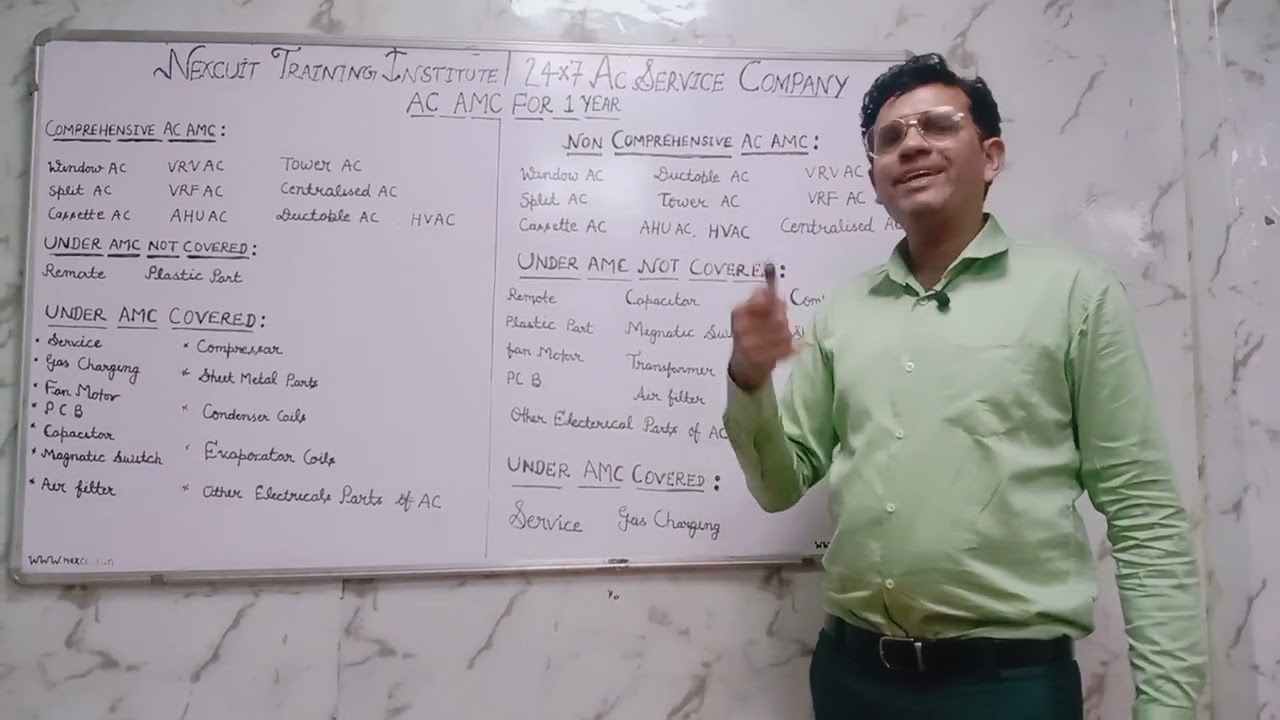 NEXCUIT TRAINING INSTITUTE | 24x7 AC SERVICE COMPANY
AC AMC FOR 1 YEAR
COMPREHENSIVE AC AMC:
Window AC VRV AC Tower AC
Split AC VRF AC Centralised AC
Cassette AC AHU AC Ductable AC HVAC
UNDER AMC NOT COVERED:
Remote Plastic Part
UNDER AMC COVERED:
• Service * Compressar
• Gas Charging * Sheet Metal Parts
* Fan Motor
* P.C.B * Condenser Coils
* Capacitor
* Magnatic Switch * Evaporatar Coils
* Air filter * Other Electricals Parts of AC
NON COMPREHENSIVE AC AMC:
Window AC Ductable AC VRV AC
Split AC Tower AC VRF AC
Cassette AC AHU AC, HVAC Centralised
UNDER AMC NOT COVERED:
Remote Capacitor
Plastic Part Megnatic
fan Motor Transformer
PCB Air filter
Other Electerical Parts of AC
UNDER AMC COVERED:
Service Gas Charging